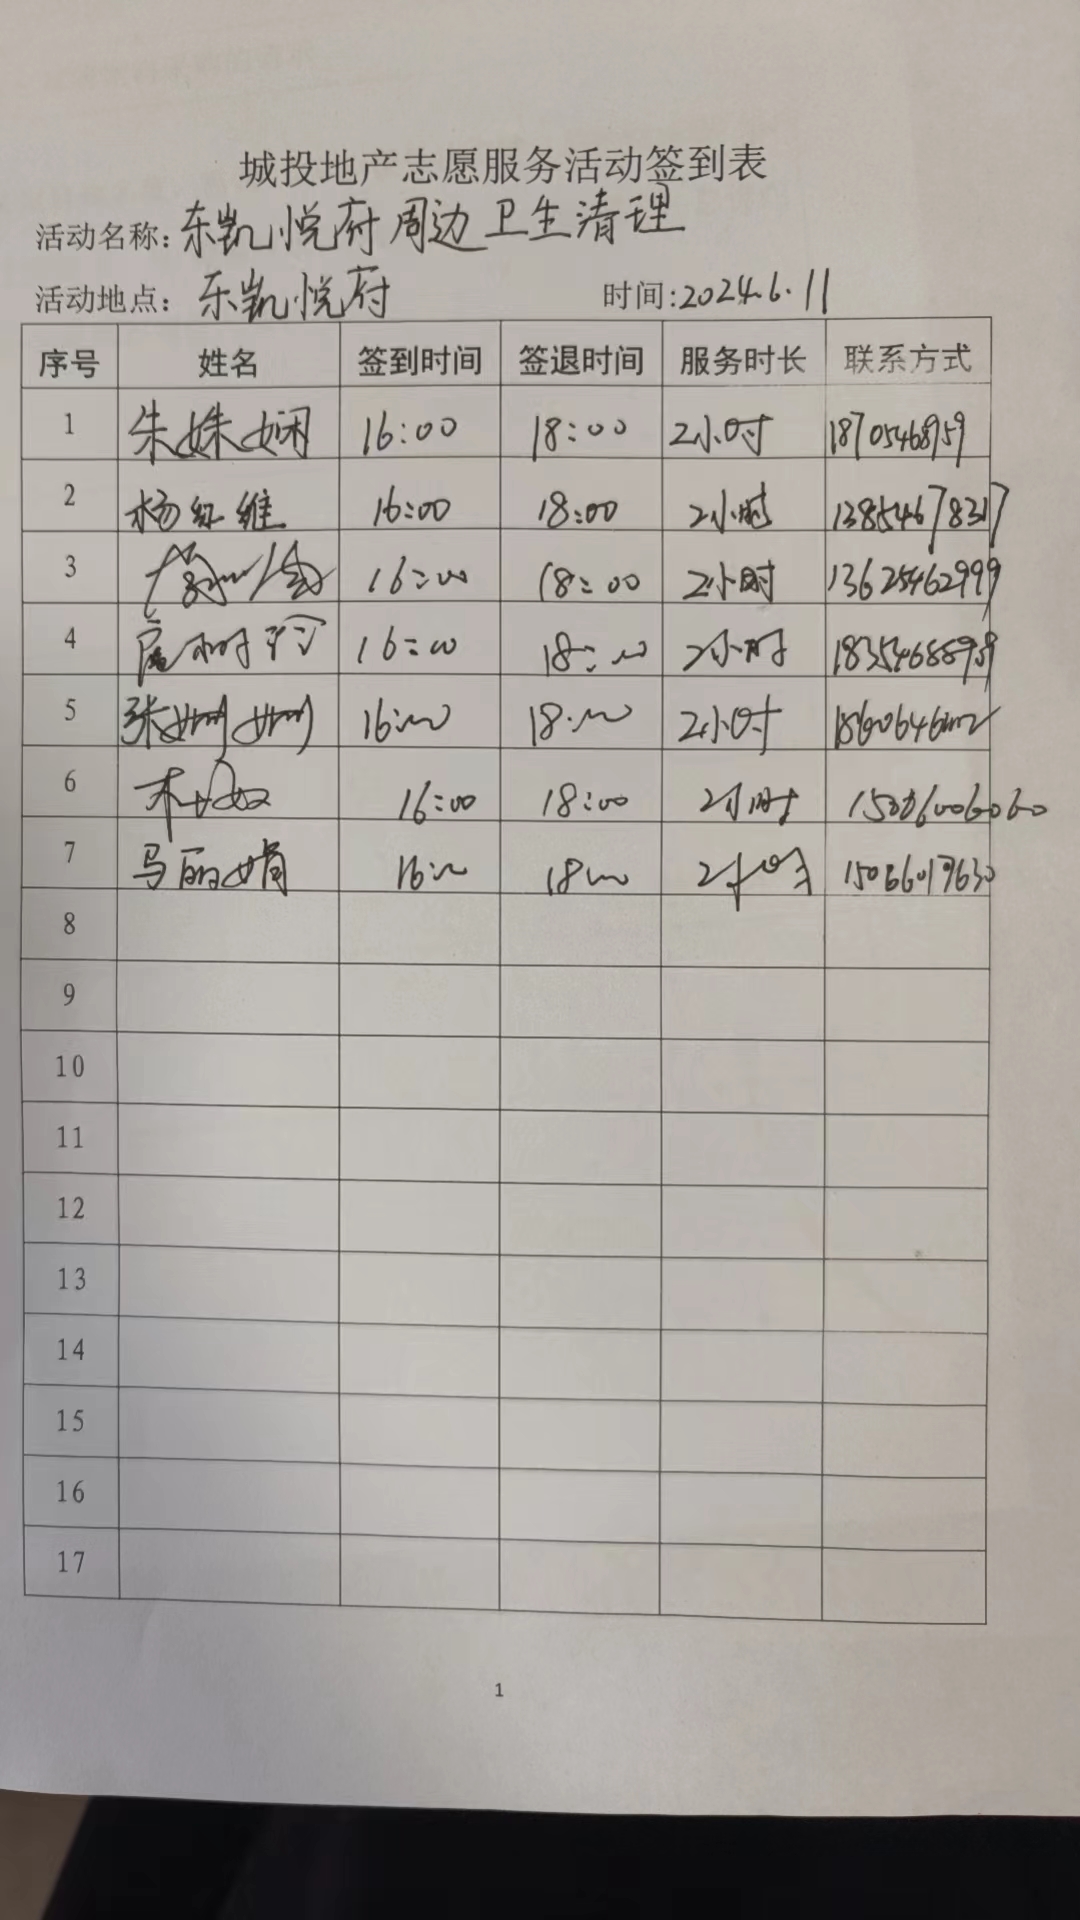 城投地产志愿服务活动签到表
活动名称: 东凯悦府周边卫生清理
活动地点: 东凯悦府 时间:2024.6.11
序号 姓名 签到时间 签退时间 服务时长 联系方式
1 朱姝娴 16:00 18:00 2小时 18705468959
2 杨红维 16:00 18:00 2小时 13854678317
3 16:00 18:00 2小时 13625462999
4 16:00 18:00 2小时
5 张姗姗 16:00 18:00 2小时
6 16:00 18:00 2小时
7 马丽娟 16:00 18:00 2小时 15066019630
8
9
10
11
12
13
14
15
16
17
1